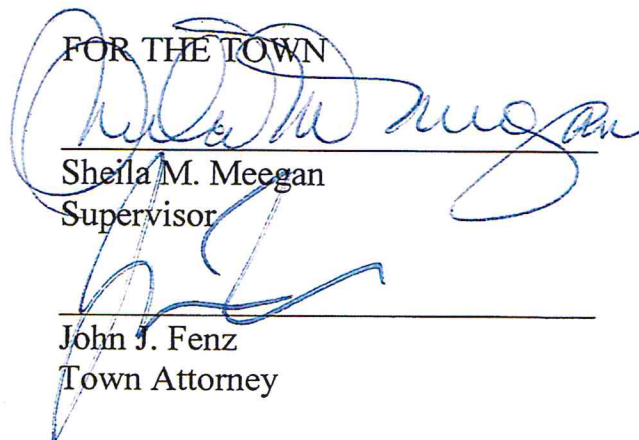 FOR THE TOWN
Sheila M Meegan
Sheila M. Meegan
Supervisor
John J. Fenz
Town Attorney